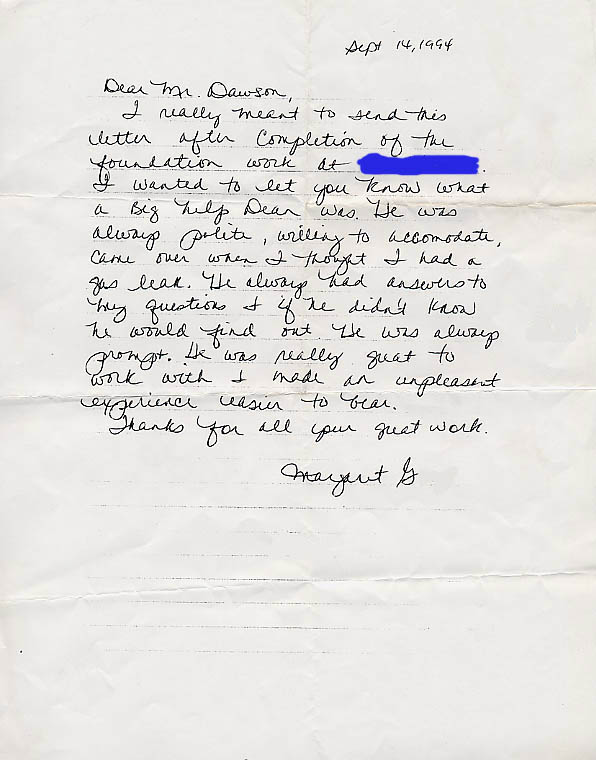 Sept 14, 1994
Dear Mr. Dawson,
I really meant to send this
letter after completion of the
foundation work at
I wanted to let you know what
a Big help Dean was. He was
always polite, willing to accomodate,
came over when I thought I had a
gas leak. He always had answers to
my questions & if he didn't know
he would find out He was always
prompt. He was really great to
work with & made an unpleasant
experience easier to bear.
Thanks for all your great work.
Margaret G